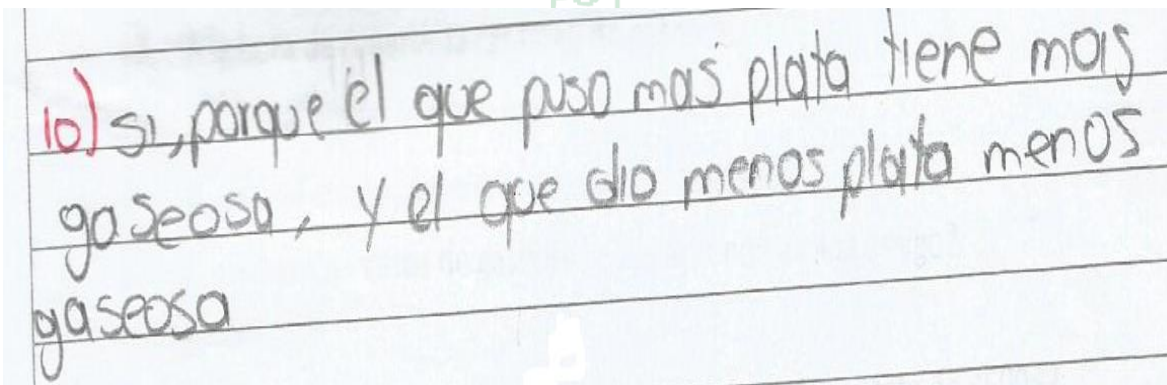 10) si, porque el que puso mas plata tiene mas
gaseosa, y el que dio menos plata menos
gaseosa